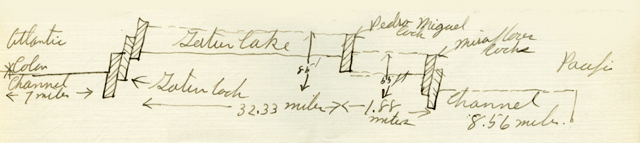 Atlantic
Colon
Channel
7 miles
Gatun Lock
Gatun Lake
32.33 miles
85'
Pedro Miguel
Lock
1.88
miles
55 ft
Miraflores
Locks
Channel
8.56 miles.
Pacific